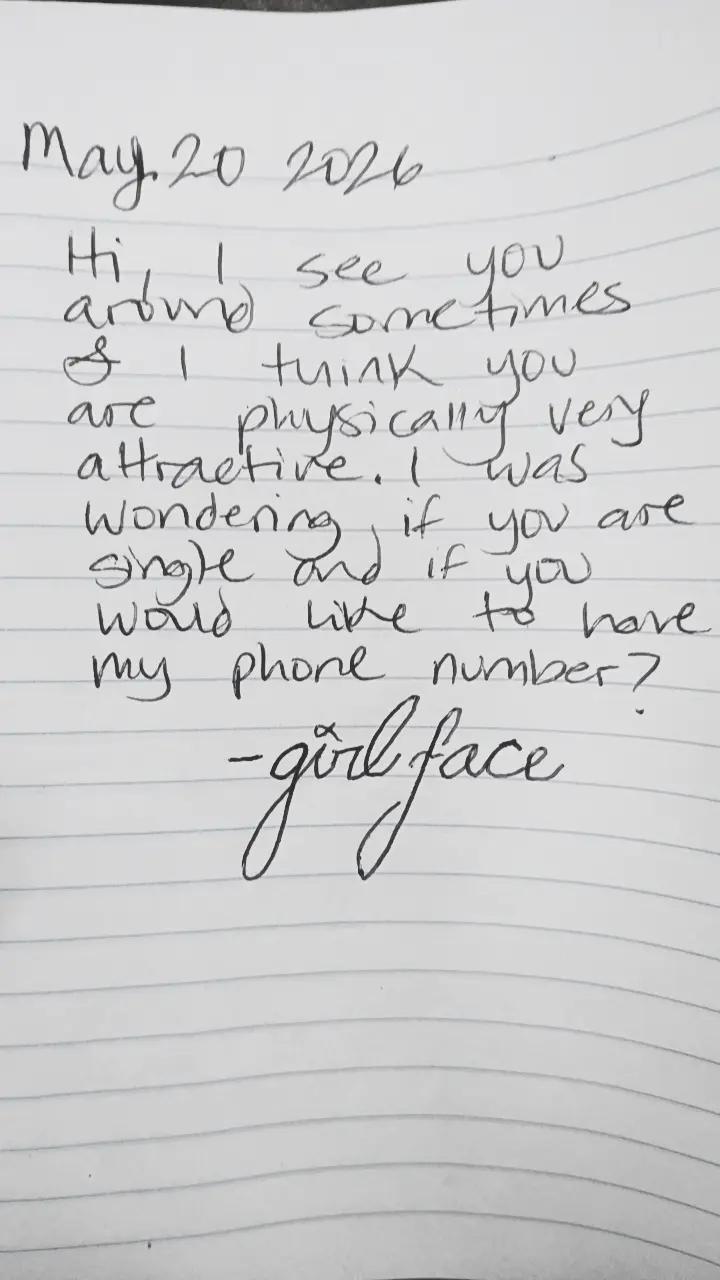 May. 20 2026
Hi, I see you
around sometimes
& I think you
are physically very
attractive. I was
wondering, if you are
single and if you
would like to have
my phone number?
-girl face